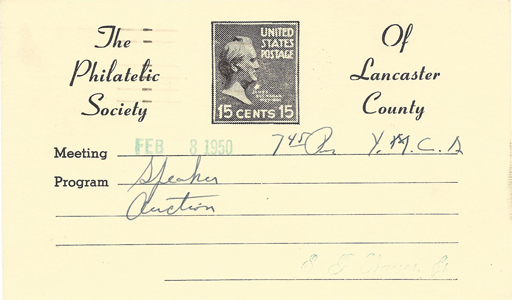 The
Philatelic
Society
UNITED
STATES
POSTAGE
15 CENTS 15
Of
Lancaster
County
Meeting FEB 8 1950 7 45 Y. M. C. A
Program Speaker
Auction